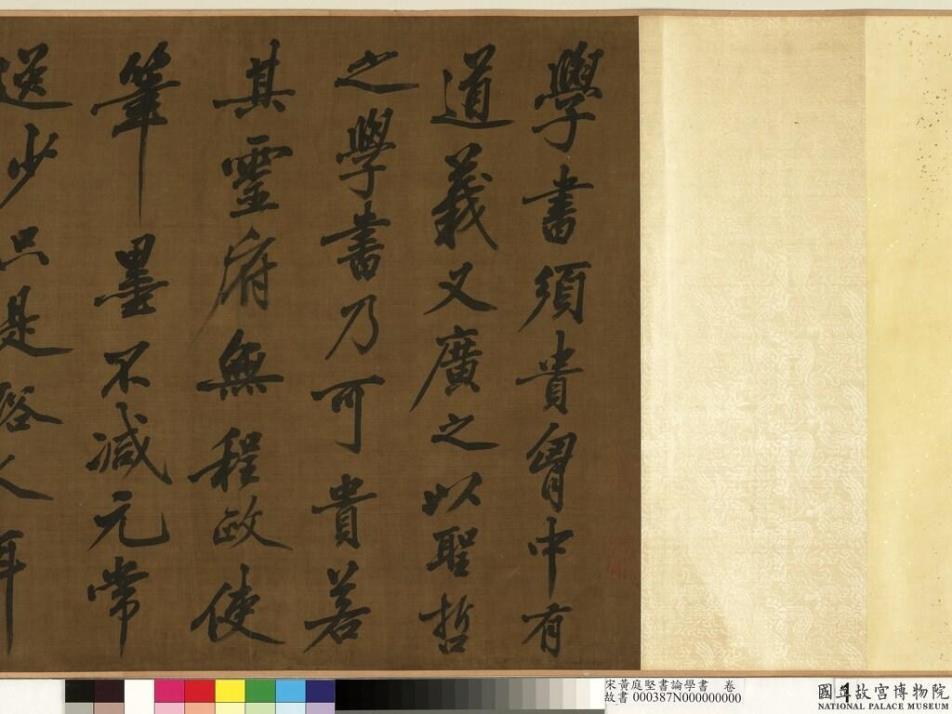 學書須貴胷中有
道義又廣之以聖哲
之學書乃可貴若
其靈府無程政使
筆墨不減元常
逸少只是俗人耳
宋黃庭堅書論學書 卷
故書 000387N000000000
國立故宮博物院
NATIONAL PALACE MUSEUM